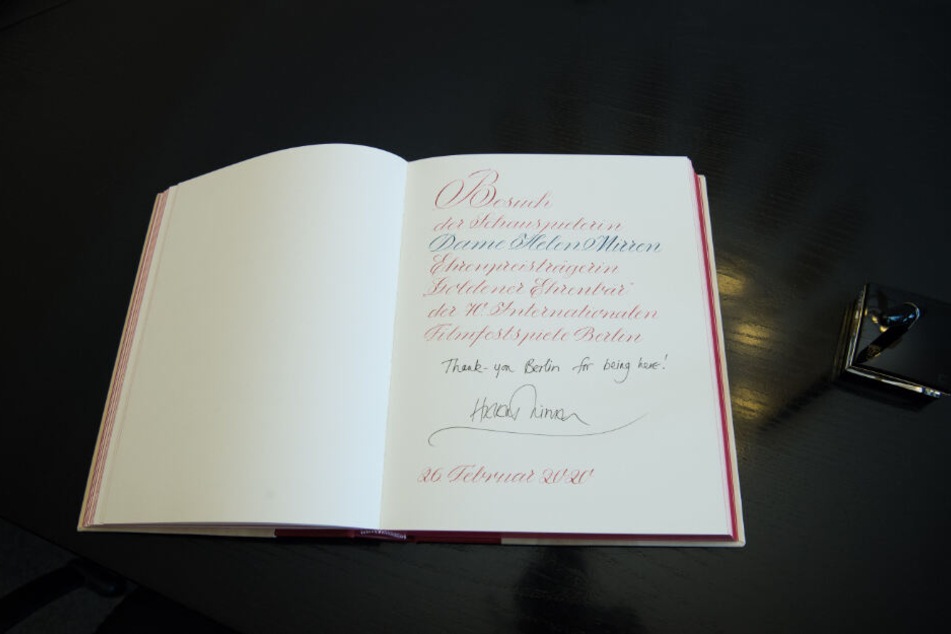 Besuch
der Schauspielerin
Dame Helen Mirren
Ehrenpreisträgerin
"Goldener Ehrenbär"
der 70. Internationalen
Filmfestspiele Berlin
Thank-you Berlin for being here!
Helen Mirren
26. Februar 2020